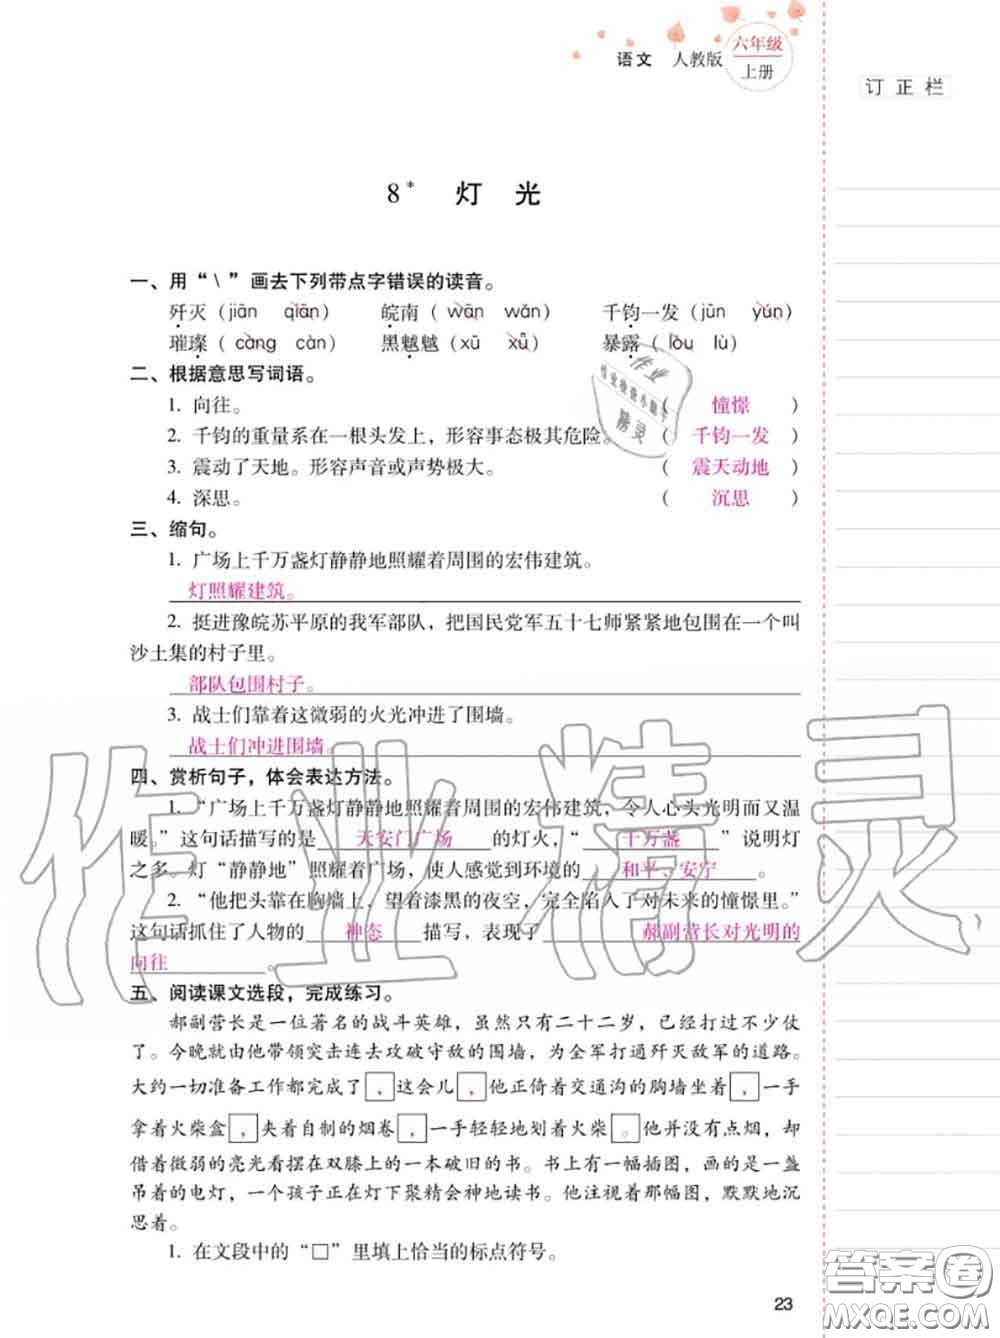 语文 人教版 六年级
上册
订正栏
8* 灯 光
一、用“\”画去下列带点字错误的读音。
歼灭（jiān qiān） 皖南（wān wǎn） 千钧一发（jūn yún）
璀璨（càng càn） 黑魆魆（xū xǔ） 暴露（lòu lù）
二、根据意思写词语。
1. 向往。 （ 憧憬 ）
2. 千钧的重量系在一根头发上，形容事态极其危险。 （ 千钧一发 ）
3. 震动了天地。形容声音或声势极大。 （ 震天动地 ）
4. 深思。 （ 沉思 ）
三、缩句。
1. 广场上千万盏灯静静地照耀着周围的宏伟建筑。
灯照耀建筑。
2. 挺进豫皖苏平原的我军部队，把国民党军五十七师紧紧地包围在一个叫
沙土集的村子里。
部队包围村子。
3. 战士们靠着这微弱的火光冲进了围墙。
战士们冲进围墙。
四、赏析句子，体会表达方法。
1. “广场上千万盏灯静静地照耀着周围的宏伟建筑，令人心头光明而又温
暖。”这句话描写的是 天安门广场 的灯火，“ 千万盏 ”说明灯
之多。灯“静静地”照耀着广场，使人感觉到环境的 和平、安宁 。
2. “他把头靠在胸墙上，望着漆黑的夜空，完全陷入了对未来的憧憬里。”
这句话抓住了人物的 神态 描写，表现了 郝副营长对光明的
向往 。
五、阅读课文选段，完成练习。
郝副营长是一位著名的战斗英雄，虽然只有二十二岁，已经打过不少仗
了。今晚就由他带领突击连去攻破守敌的围墙，为全军打通歼灭敌军的道路。
大约一切准备工作都完成了，这会儿，他正倚着交通沟的胸墙坐着，一手
拿着火柴盒，夹着自制的烟卷，一手轻轻地划着火柴。他并没有点烟，却
借着微弱的亮光看摆在双膝上的一本破旧的书。书上有一幅插图，画的是一盏
吊着的电灯，一个孩子正在灯下聚精会神地读书。他注视着那幅图，默默地沉
思着。
1. 在文段中的“□”里填上恰当的标点符号。
23
作业精灵
答案圈
MXQE.COM